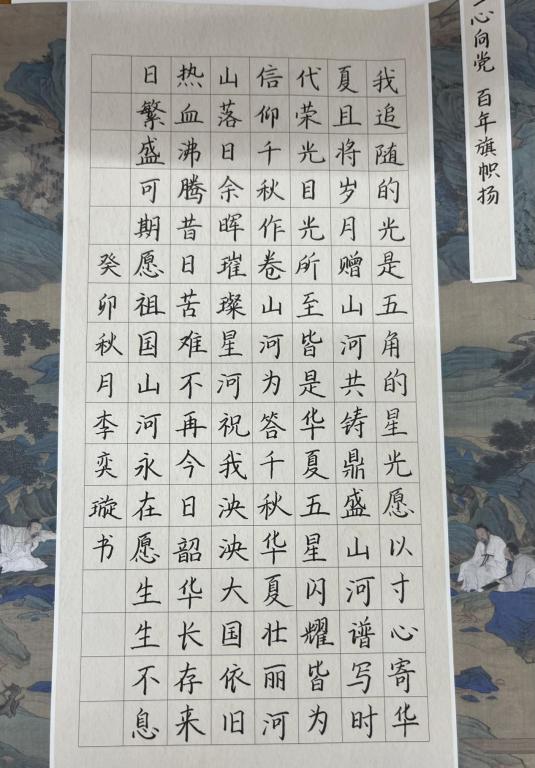 一心向党 百年旗帜扬
我追随的光是五角的星光愿以寸心寄华
夏且将岁月赠山河共铸鼎盛山河谱写时
代荣光目光所至皆是华夏五星闪耀皆为
信仰千秋作卷山河为答千秋华夏壮丽河
山落日余晖璀璨星河祝我泱泱大国依旧
热血沸腾昔日苦难不再今日韶华长存来
日繁盛可期愿祖国山河永在愿生生不息
癸卯秋月李奕璇书